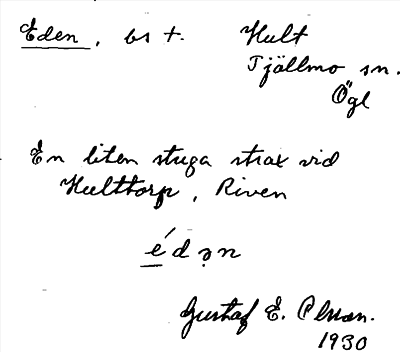 Eden, bs t. Hult
Tjällmo sn.
Ögl
En liten stuga strax vid
Hulttorp, Riven
é d ə n
Gustaf E. Olsson.
1930